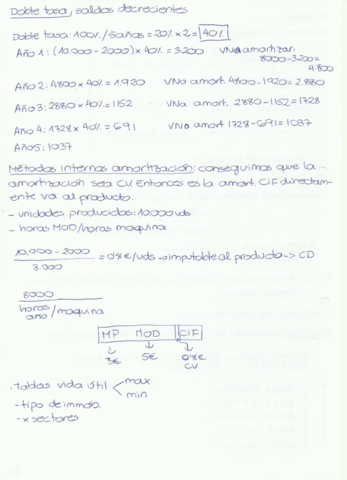 Doble tasa, saldos decrecientes
Doble tasa: 100% / 5años = 20% x 2 = 40%
Año 1: (10.000 - 2000) x 40% = 3.200 VNa amortizar:
8000 - 3.200 =
4.800
Año 2: 4800 x 40% = 1.920 VNa amort. 4800 - 1920 = 2.880
Año 3: 2880 x 40% = 1152 VNa amort. 2880 - 1152 = 1728
Año 4: 1728 x 40% = 691 VNa amort 1728 - 691 = 1037
Año 5: 1037
Métodos internos amortización: conseguimos que la
amortización sea CV. Entonces es la amort. CIF directam-
ente va al producto.
- unidades producidas: 10.000 uds
- horas MOD/horas maquina
10.000 - 2000
8.000
= 0'8€/uds -> imputable al producto -> CD
8000
horas
año / maquina
MP MOD CIF
3€ 5€ 0'8€
CV
. Tablas vida útil
max
min
- tipo de inmob.
- x sectores